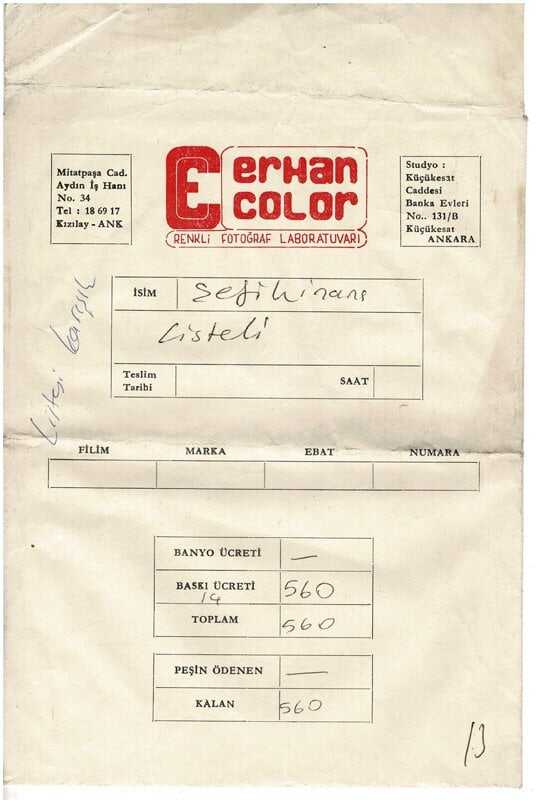 Mitatpaşa Cad.
Aydın İş Hanı
No. 34
Tel : 18 69 17
Kızılay - ANK
erhan
color
RENKLİ FOTOĞRAF LABORATUVARI
Studyo :
Küçükesat
Caddesi
Banka Evleri
No.. 131/B
Küçükesat
ANKARA
İSİM
Listeli
Teslim
Tarihi
SAAT
Listesi karışık
FİLİM MARKA EBAT NUMARA
BANYO ÜCRETİ —
BASKI ÜCRETİ 560
14
TOPLAM 560
PEŞİN ÖDENEN —
KALAN 560
13